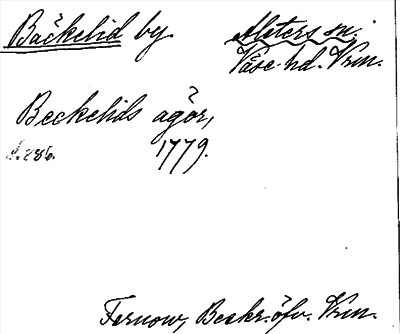 Bäckelid by.
Alsters sn.
Väse hd. Vrm.
Beckelids ägor,
s. 286. 1779.
Fernow, Beskr. öfv. Vrm.